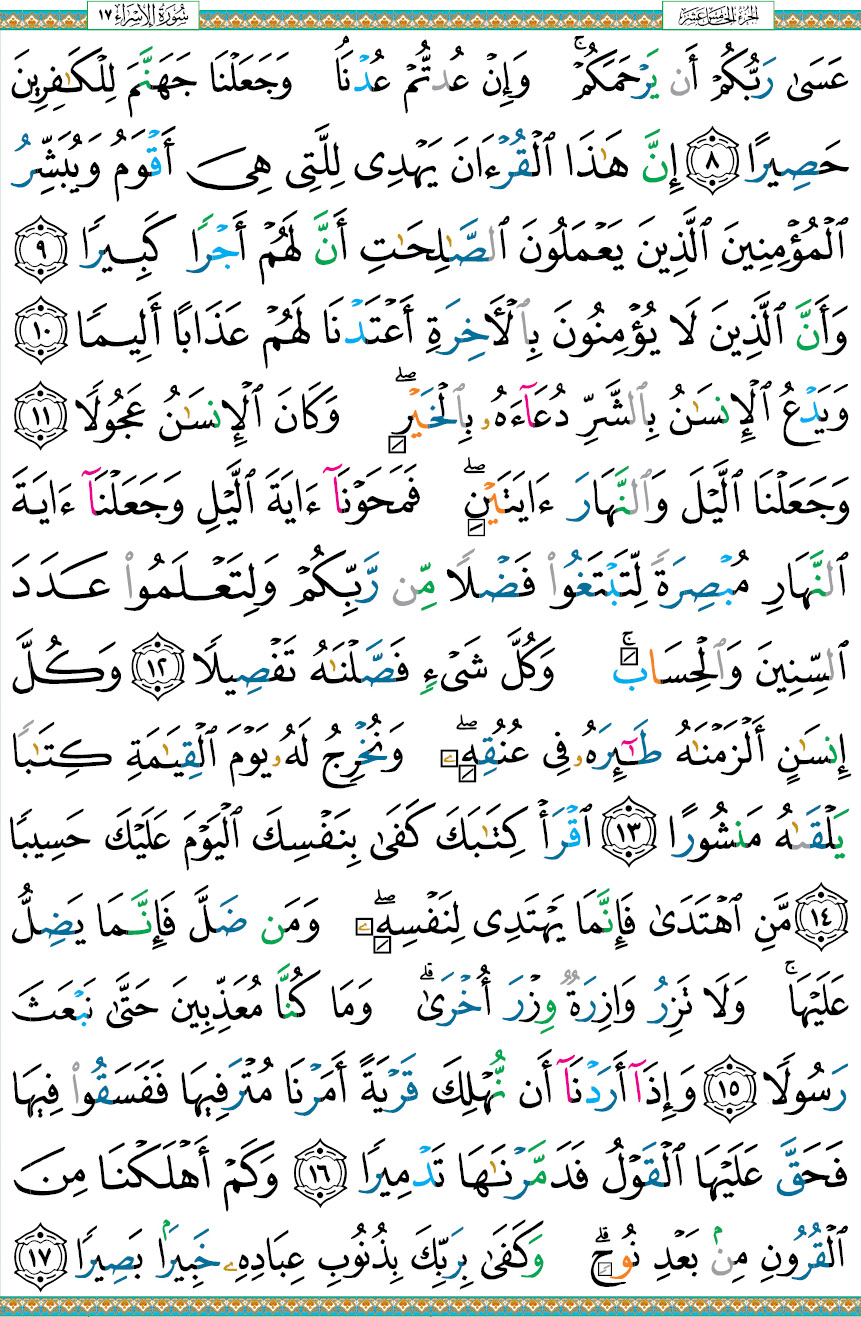 الجزء الخامس عشر
سُورَةُ الإِسْرَاءِ ١٧
عَسَىٰ رَبُّكُمْ أَن يَرْحَمَكُمْ ۚ وَإِنْ عُدتُّمْ عُدْنَا وَجَعَلْنَا جَهَنَّمَ لِلْكَـٰفِرِينَ
حَصِيرًا ٨ إِنَّ هَـٰذَا ٱلْقُرْءَانَ يَهْدِى لِلَّتِى هِىَ أَقْوَمُ وَيُبَشِّرُ
ٱلْمُؤْمِنِينَ ٱلَّذِينَ يَعْمَلُونَ ٱلصَّـٰلِحَـٰتِ أَنَّ لَهُمْ أَجْرًا كَبِيرًا ٩
وَأَنَّ ٱلَّذِينَ لَا يُؤْمِنُونَ بِٱلْـَٔاخِرَةِ أَعْتَدْنَا لَهُمْ عَذَابًا أَلِيمًا ١٠
وَيَدْعُ ٱلْإِنسَـٰنُ بِٱلشَّرِّ دُعَآءَهُۥ بِٱلْخَيْرِ ۖ وَكَانَ ٱلْإِنسَـٰنُ عَجُولًا ١١
وَجَعَلْنَا ٱلَّيْلَ وَٱلنَّهَارَ ءَايَتَيْنِ ۖ فَمَحَوْنَآ ءَايَةَ ٱلَّيْلِ وَجَعَلْنَآ ءَايَةَ
ٱلنَّهَارِ مُبْصِرَةً لِّتَبْتَغُوا۟ فَضْلًا مِّن رَّبِّكُمْ وَلِتَعْلَمُوا۟ عَدَدَ
ٱلسِّنِينَ وَٱلْحِسَابَ ۚ وَكُلَّ شَىْءٍ فَصَّلْنَـٰهُ تَفْصِيلًا ١٢ وَكُلَّ
إِنسَـٰنٍ أَلْزَمْنَـٰهُ طَـٰٓئِرَهُۥ فِى عُنُقِهِۦ ۖ وَنُخْرِجُ لَهُۥ يَوْمَ ٱلْقِيَـٰمَةِ كِتَـٰبًا
يَلْقَىٰهُ مَنشُورًا ١٣ ٱقْرَأْ كِتَـٰبَكَ كَفَىٰ بِنَفْسِكَ ٱلْيَوْمَ عَلَيْكَ حَسِيبًا
١٤ مَّنِ ٱهْتَدَىٰ فَإِنَّمَا يَهْتَدِى لِنَفْسِهِۦ ۖ وَمَن ضَلَّ فَإِنَّمَا يَضِلُّ
عَلَيْهَا ۚ وَلَا تَزِرُ وَازِرَةٌ وِزْرَ أُخْرَىٰ ۗ وَمَا كُنَّا مُعَذِّبِينَ حَتَّىٰ نَبْعَثَ
رَسُولًا ١٥ وَإِذَآ أَرَدْنَآ أَن نُّهْلِكَ قَرْيَةً أَمَرْنَا مُتْرَفِيهَا فَفَسَقُوا۟ فِيهَا
فَحَقَّ عَلَيْهَا ٱلْقَوْلُ فَدَمَّرْنَـٰهَا تَدْمِيرًا ١٦ وَكَمْ أَهْلَكْنَا مِنَ
ٱلْقُرُونِ مِنۢ بَعْدِ نُوحٍ ۗ وَكَفَىٰ بِرَبِّكَ بِذُنُوبِ عِبَادِهِۦ خَبِيرًۢا بَصِيرًا ١٧